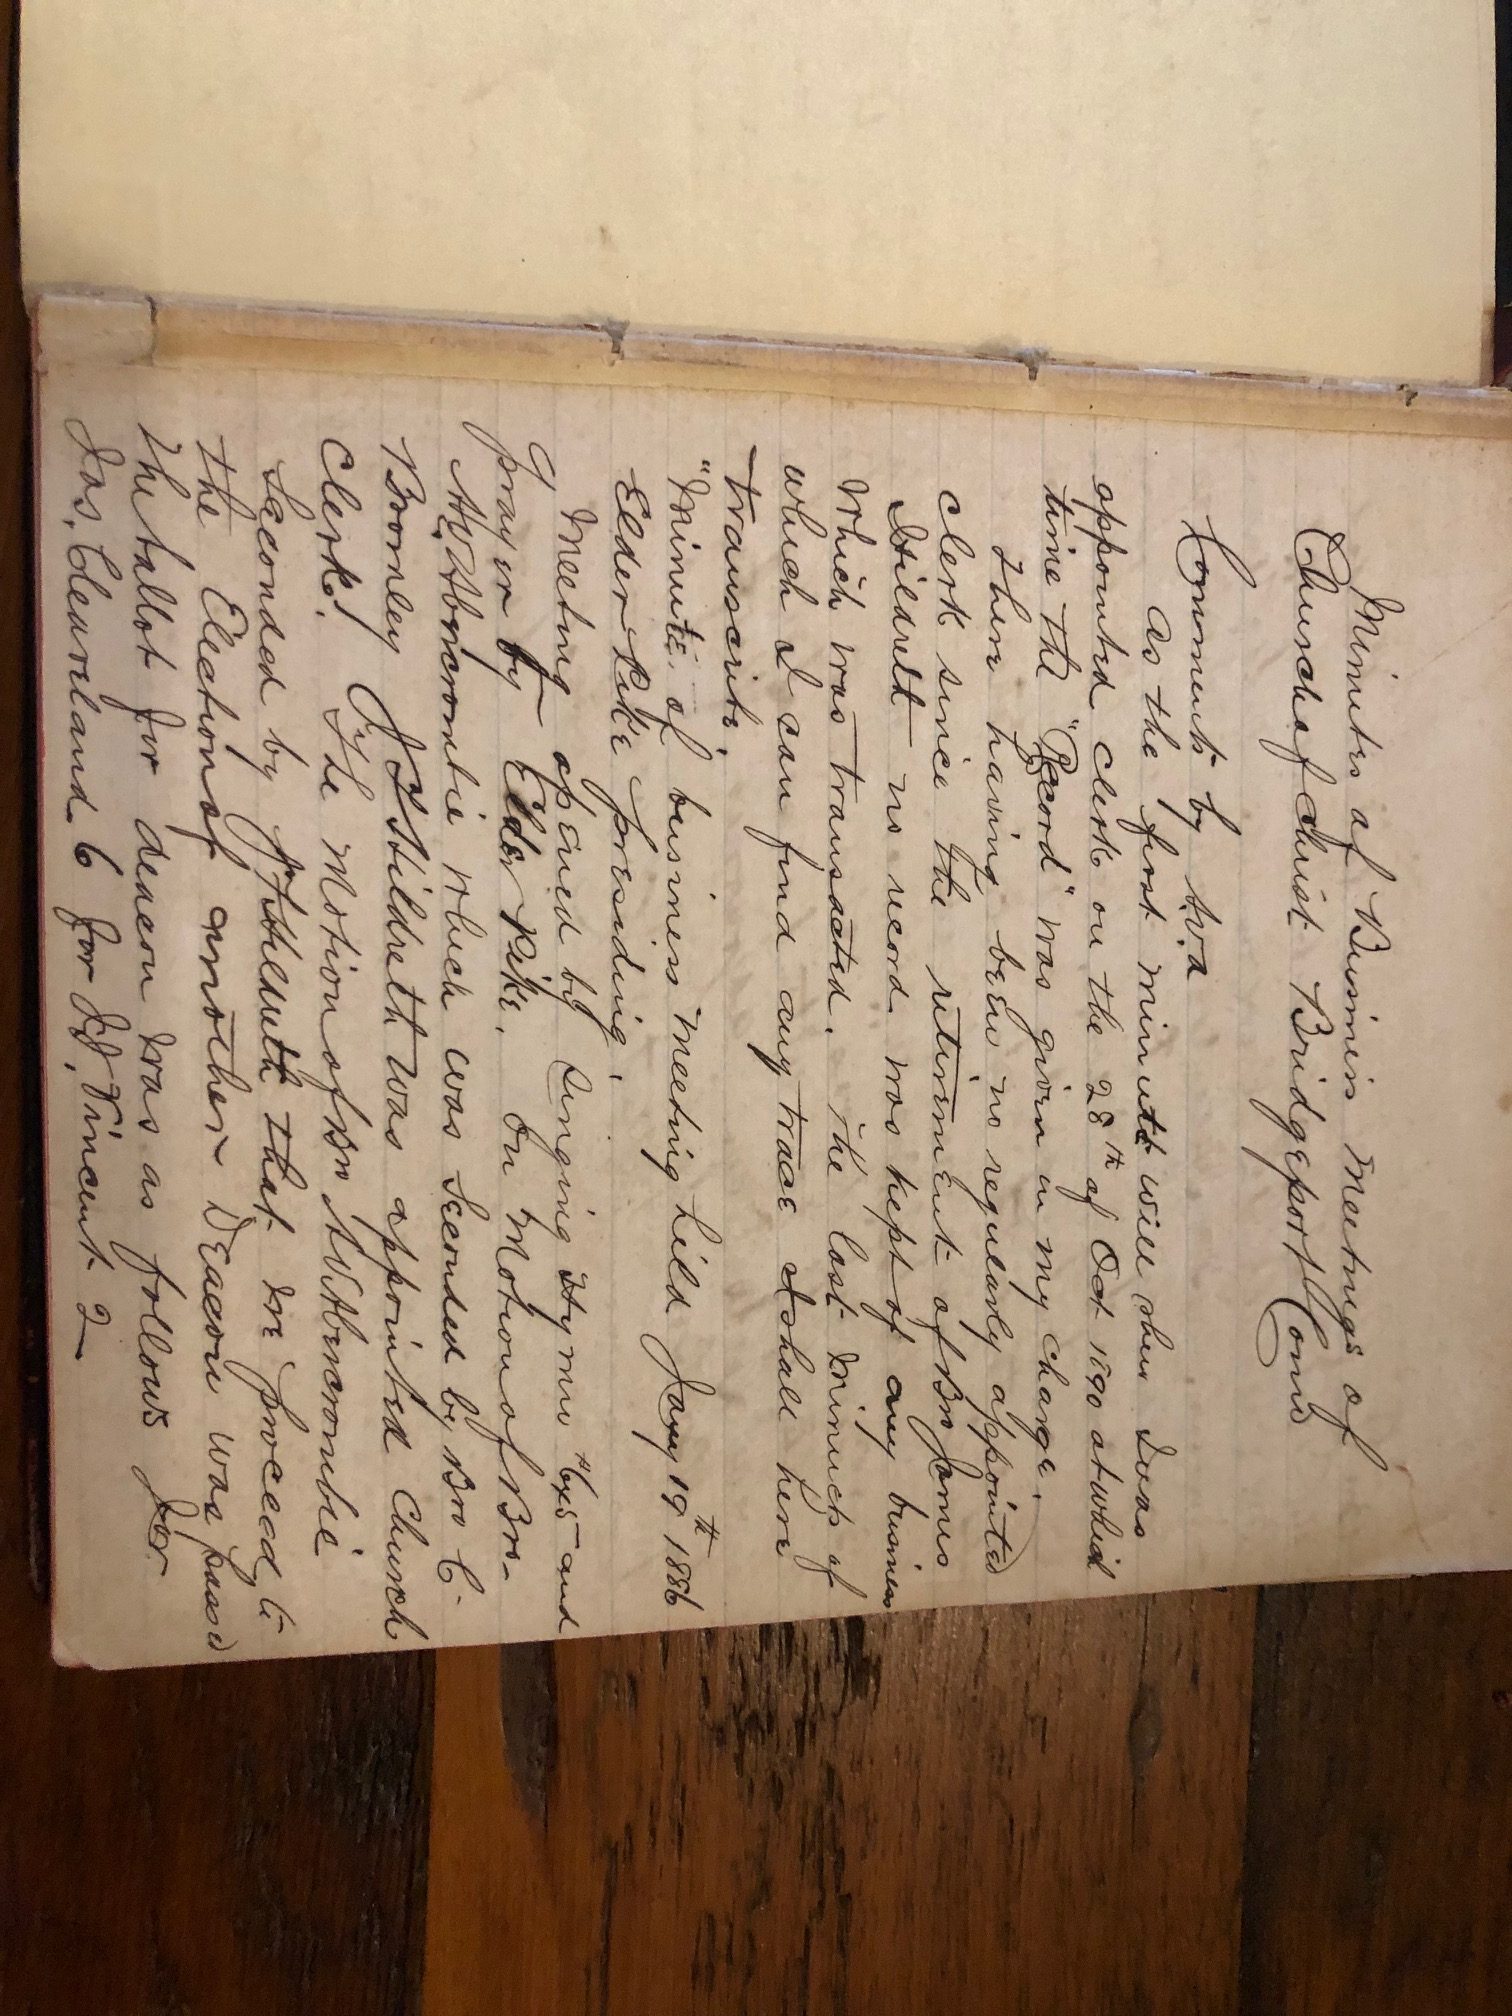 Minutes of Business Meetings of
Church of Christ Bridgeport Conn
Comments by A.W.A
As the first minutes will show I was
appointed clerk on the 28th of Oct 1890 at which
time the "Record" was given in my charge.
There having been no regularly appointed
clerk since the retirement of Bro James
Hildreth no record was kept of any business
which was transacted. The last minutes of
which I can find any trace I shall here
transcribe.
"Minutes of business meeting held Jany 19th 1886
Elder Pike presiding.
Meeting opened by singing Hymn # 645 and
prayer by Elder Pike. On Motion of Bro-
A.W. Abercrombie which was seconded by Bro C.
Bromley J Hildreth was appointed Church
Clerk. The motion of Bro A W Abercrombie
seconded by J Hildreth that we proceed to
the Election of another Deacon was passed
The ballot for deacon was as follows For
Jas. Cleaveland 6 for J.J. Vincent 2